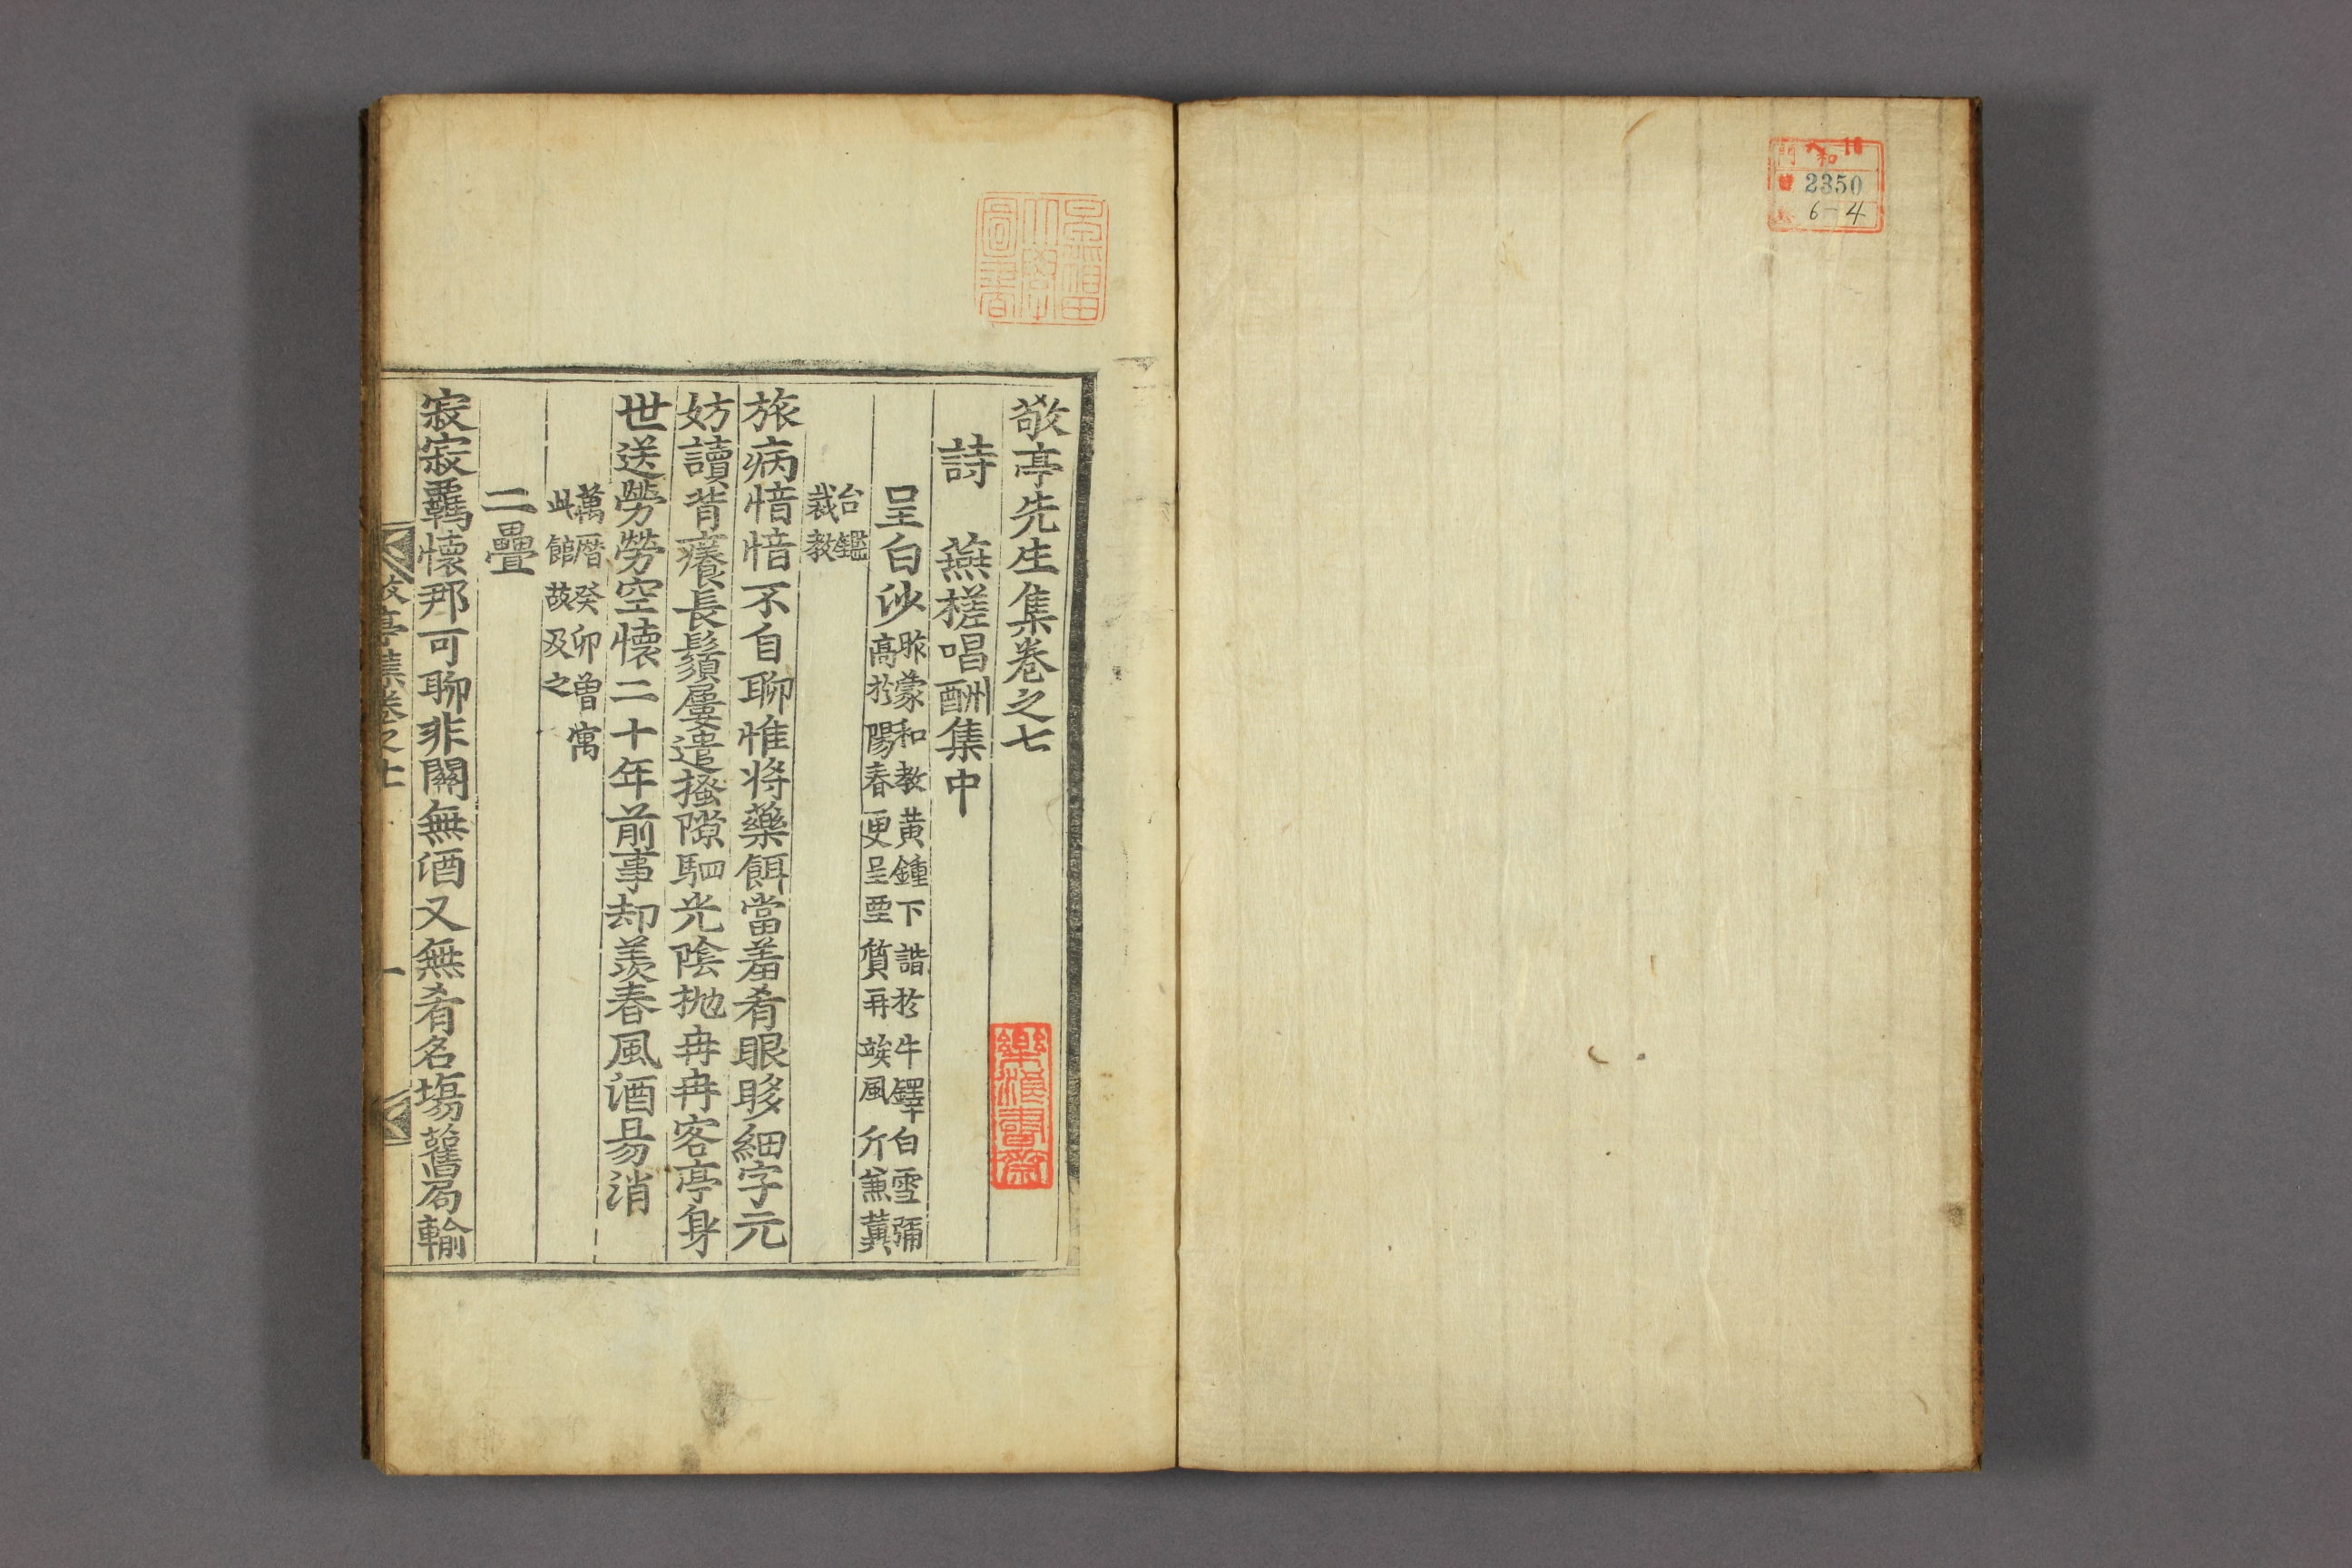 2350
6-4
敬亭先生集卷之七
詩　燕槎唱酬集中
呈白沙 昨蒙和教黃鍾下諧於牛鐸白雪彌
高於陽春更呈堊質再竢風斤兼冀
台鑑
裁教
旅病愔愔不自聊惟將藥餌當羞肴眼眵細字元
妨讀背癢長鬚屢遣搔隙駟光陰抛冉冉客亭身
世送勞勞空懷二十年前事却羨春風酒昜消
萬曆癸卯曾寓
此館故及之
二疊
寂寂羈懷那可聊非關無酒又無肴名塲舊局輸
敬亭集卷之七　一
樂浪書齋